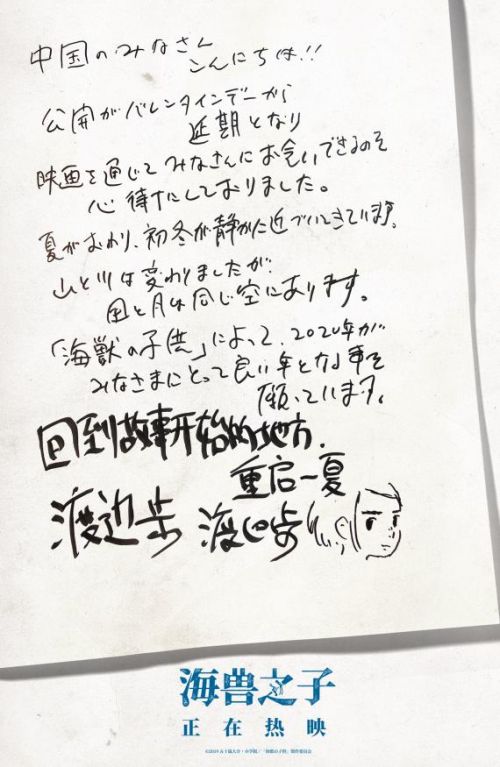 中国のみなさん
こんにちは!!
公開がバレンタインデーから
延期となり
映画を通じてみなさんにお会いできるのを
心待ちにしておりました。
夏がおわり、初冬が静かに近づいてきています。
山と川は変わりましたが、
風と月は同じ空にあります。
「海獣の子供」によって、2020年が
みなさまにとって良い年となる事を
願っています。
回到故事开始的地方.
重启一夏
渡边步
海兽之子
正在热映
©2019 五十嵐大介・小学館/「海獣の子供」製作委員会